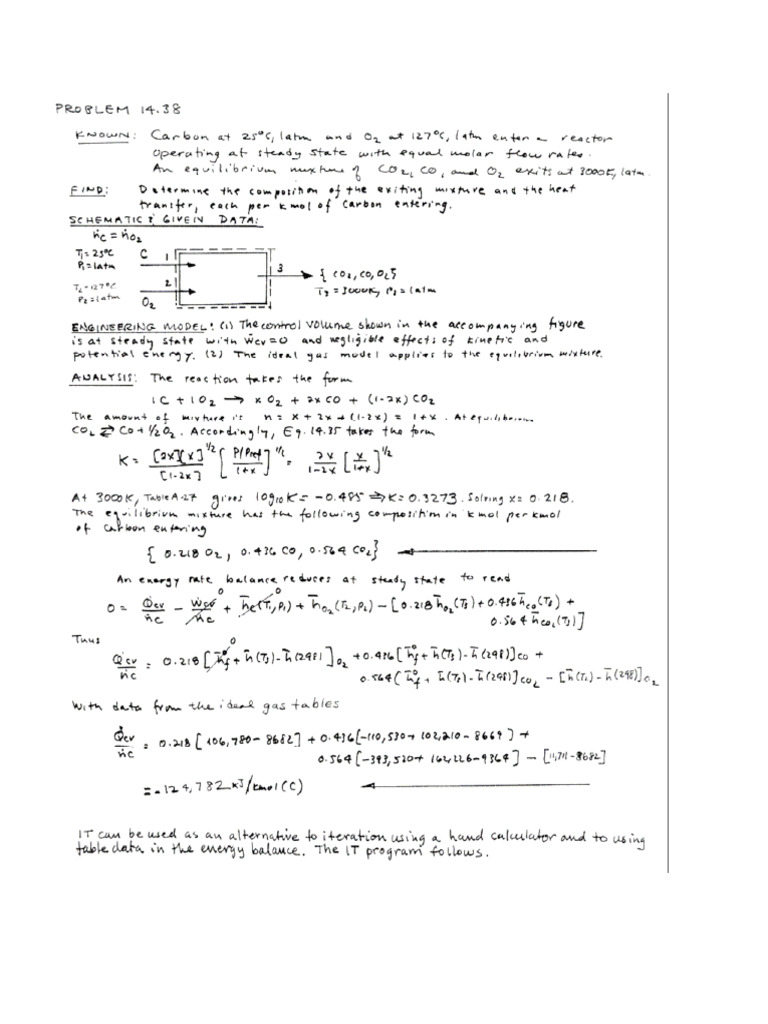 PROBLEM 14.38
KNOWN: Carbon at 25°C, 1atm and O2 at 127°C, 1atm enter a reactor
operating at steady state with equal molar flow rates.
An equilibrium mixture of CO2, CO, and O2 exits at 3000K, 1atm.
FIND: Determine the composition of the exiting mixture and the heat
transfer, each per kmol of carbon entering.
SCHEMATIC & GIVEN DATA:
ṅc = ṅO2
T1 = 25°C C 1
P1 = 1atm
3 { CO2, CO, O2}
T2 = 127°C 2
T3 = 3000K, P3 = 1atm
P2 = 1atm
O2
ENGINEERING MODEL: (1) The control volume shown in the accompanying figure
is at steady state with Ẇcv = 0 and negligible effects of kinetic and
potential energy. (2) The ideal gas model applies to the equilibrium mixture.
ANALYSIS: The reaction takes the form
1C + 1O2 → xO2 + 2xCO + (1-2x)CO2
The amount of mixture is n = x + 2x + (1-2x) = 1+x. At equilibrium
CO2 ⇄ CO + 1/2 O2. Accordingly, Eq. 14.35 takes the form
K = [2x][x]^1/2 / [1-2x] [ P/Pref / 1+x ]^1/2 = 2x / 1-2x [ x / 1+x ]^1/2
At 3000K, Table A-27 gives log10K = -0.485 ⇒ K = 0.3273. Solving x = 0.218.
The equilibrium mixture has the following composition in kmol per kmol
of carbon entering
{ 0.218 O2, 0.436 CO, 0.564 CO2}
An energy rate balance reduces at steady state to read
0 = Q̇cv/ṅc - Ẇcv/ṅc 0 + h̄c(T1,P1) 0 + h̄O2(T2,P2) - [0.218 h̄O2(T3) + 0.436 h̄CO(T3) +
0.564 h̄CO2(T3)]
Thus
Q̇cv/ṅc = 0.218 [h̄°f 0 + h̄(T3) - h̄(298)]O2 + 0.436 [h̄°f + h̄(T3) - h̄(298)]CO +
0.564 [h̄°f + h̄(T3) - h̄(298)]CO2 - [h̄(T2) - h̄(298)]O2
With data from the ideal gas tables
Q̇cv/ṅc = 0.218 [106,780 - 8682] + 0.436 [-110,530 + 102,210 - 8669] +
0.564 [-393,520 + 162,226 - 9364] - [11,711 - 8682]
= -124,782 kJ/kmol (C)
IT can be used as an alternative to iteration using a hand calculator and to using
table data in the energy balance. The IT program follows.